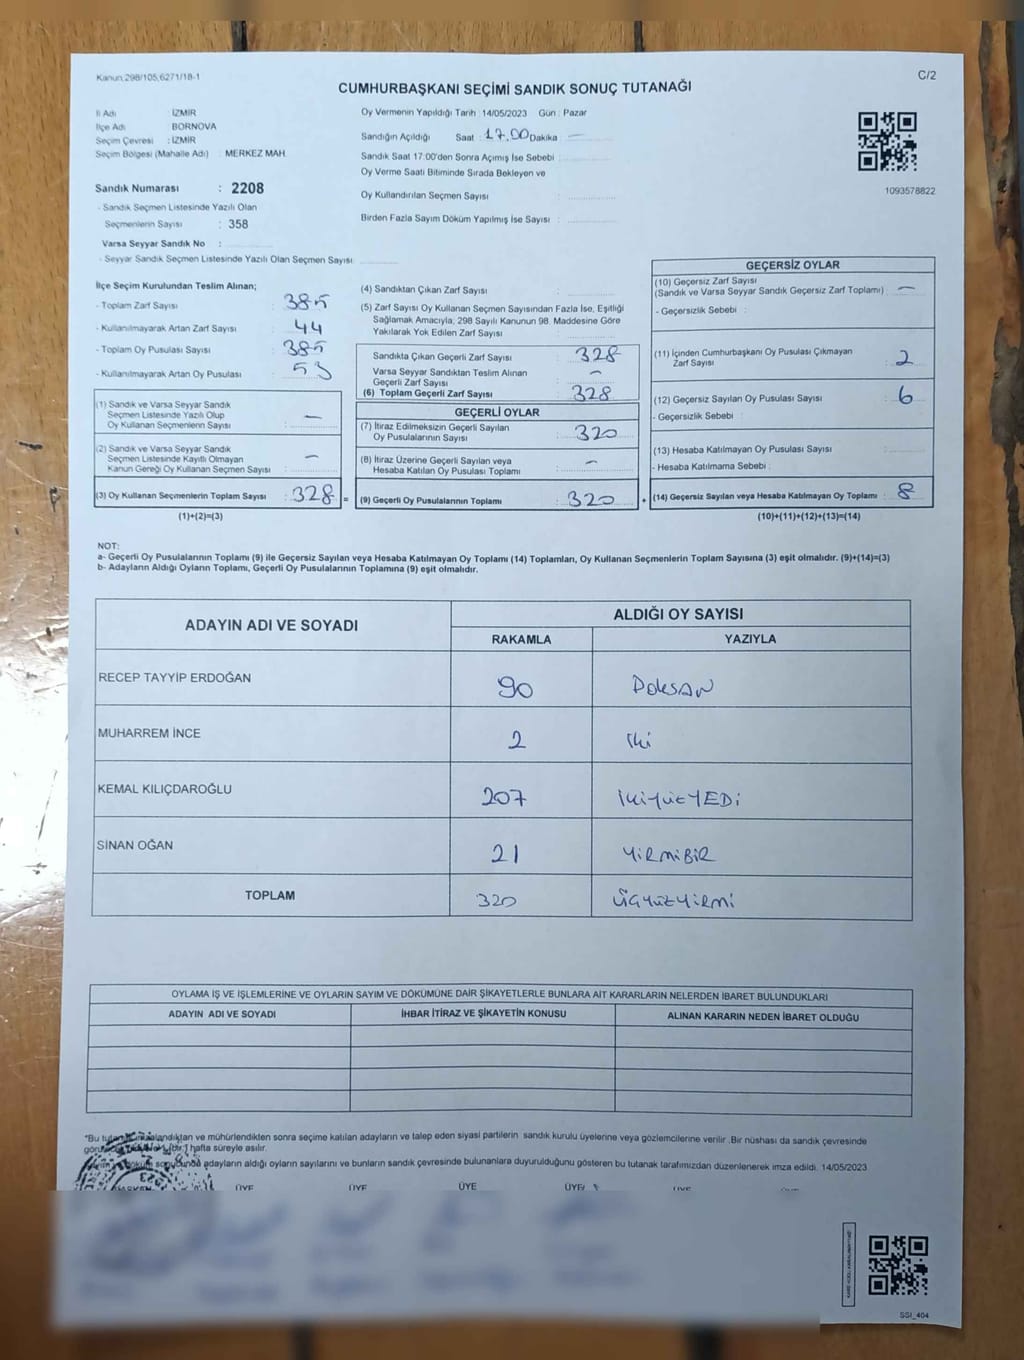 Kanun:298/105,6271/18-1
C/2
CUMHURBAŞKANI SEÇİMİ SANDIK SONUÇ TUTANAĞI
İl Adı : İZMİR
İlçe Adı : BORNOVA
Seçim Çevresi : İZMİR
Seçim Bölgesi (Mahalle Adı) : MERKEZ MAH.
Sandık Numarası : 2208
- Sandık Seçmen Listesinde Yazılı Olan
Seçmenlerin Sayısı : 358
Varsa Seyyar Sandık No :
- Seyyar Sandık Seçmen Listesinde Yazılı Olan Seçmen Sayısı :
Oy Vermenin Yapıldığı Tarih : 14/05/2023 Gün : Pazar
Sandığın Açıldığı Saat : 17.00 Dakika : —
Sandık Saat 17:00'den Sonra Açımış İse Sebebi :
Oy Verme Saati Bitiminde Sırada Bekleyen ve
Oy Kullandırılan Seçmen Sayısı :
Birden Fazla Sayım Döküm Yapılmış İse Sayısı :
1093578822
İlçe Seçim Kurulundan Teslim Alınan;
- Toplam Zarf Sayısı : 385
- Kullanılmayarak Artan Zarf Sayısı : 44
- Toplam Oy Pusulası Sayısı : 385
- Kullanılmayarak Artan Oy Pusulası : 53
(1) Sandık ve Varsa Seyyar Sandık
Seçmen Listesinde Yazılı Olup
Oy Kullanan Seçmenlerin Sayısı : —
(2) Sandık ve Varsa Seyyar Sandık
Seçmen Listesinde Kayıtlı Olmayan
Kanun Gereği Oy Kullanan Seçmen Sayısı : —
(3) Oy Kullanan Seçmenlerin Toplam Sayısı : 328 =
(1)+(2)=(3)
(4) Sandıktan Çıkan Zarf Sayısı :
(5) Zarf Sayısı Oy Kullanan Seçmen Sayısından Fazla İse, Eşitliği
Sağlamak Amacıyla, 298 Sayılı Kanunun 98. Maddesine Göre
Yakılarak Yok Edilen Zarf Sayısı :
Sandıkta Çıkan Geçerli Zarf Sayısı : 328
Varsa Seyyar Sandıktan Teslim Alınan
Geçerli Zarf Sayısı : —
(6) Toplam Geçerli Zarf Sayısı : 328
GEÇERLİ OYLAR
(7) İtiraz Edilmeksizin Geçerli Sayılan
Oy Pusulalarının Sayısı : 320
(8) İtiraz Üzerine Geçerli Sayılan veya
Hesaba Katılan Oy Pusulası Toplamı : —
(9) Geçerli Oy Pusulalarının Toplamı : 320 +
GEÇERSİZ OYLAR
(10) Geçersiz Zarf Sayısı
(Sandık ve Varsa Seyyar Sandık Geçersiz Zarf Toplamı) : —
- Geçersizlik Sebebi :
(11) İçinden Cumhurbaşkanı Oy Pusulası Çıkmayan
Zarf Sayısı : 2
(12) Geçersiz Sayılan Oy Pusulası Sayısı : 6
- Geçersizlik Sebebi :
(13) Hesaba Katılmayan Oy Pusulası Sayısı :
- Hesaba Katılmama Sebebi :
(14) Geçersiz Sayılan veya Hesaba Katılmayan Oy Toplamı : 8
(10)+(11)+(12)+(13)=(14)
NOT:
a- Geçerli Oy Pusulalarının Toplamı (9) ile Geçersiz Sayılan veya Hesaba Katılmayan Oy Toplamı (14) Toplamları, Oy Kullanan Seçmenlerin Toplam Sayısına (3) eşit olmalıdır. (9)+(14)=(3)
b- Adayların Aldığı Oyların Toplamı, Geçerli Oy Pusulalarının Toplamına (9) eşit olmalıdır.
ADAYIN ADI VE SOYADI ALDIĞI OY SAYISI
RAKAMLA YAZIYLA
RECEP TAYYİP ERDOĞAN 90 DOKSAN
MUHARREM İNCE 2 İki
KEMAL KILIÇDAROĞLU 207 İKİYÜZYEDİ
SİNAN OĞAN 21 YİRMİBİR
TOPLAM 320 ÜÇYÜZYİRMİ
OYLAMA İŞ VE İŞLEMLERİNE VE OYLARIN SAYIM VE DÖKÜMÜNE DAİR ŞİKAYETLERLE BUNLARA AİT KARARLARIN NELERDEN İBARET BULUNDUKLARI
ADAYIN ADI VE SOYADI İHBAR İTİRAZ VE ŞİKAYETİN KONUSU ALINAN KARARIN NEDEN İBARET OLDUĞU
*Bu ve mühürlendikten sonra seçime katılan adayların ve talep eden siyasi partilerin sandık kurulu üyelerine veya gözlemcilerine verilir .Bir nüshası da sandık çevresinde
hafta süreyle asılır.
adayların aldığı oyların sayılarını ve bunların sandık çevresinde bulunanlara duyurulduğunu gösteren bu tutanak tarafımızdan düzenlenerek imza edildi. 14/05/2023
ÜYE ÜYE ÜYE ÜYE
SSI_404